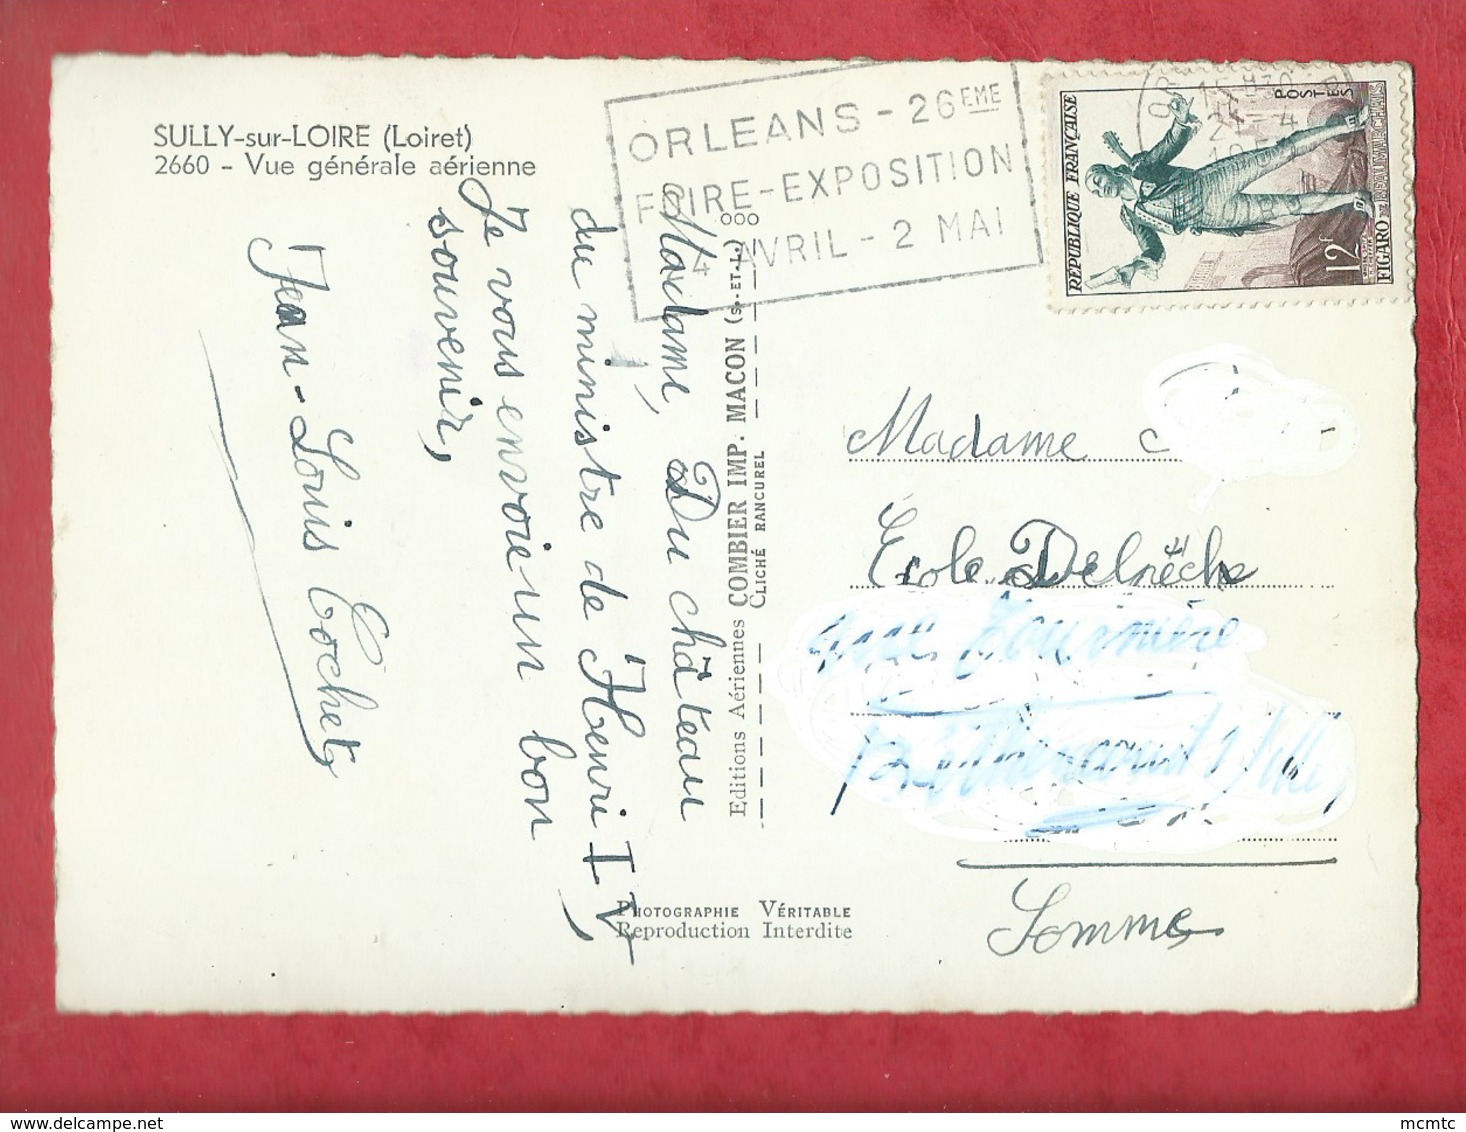 SULLY-sur-LOIRE (Loiret)
2660 - Vue générale aérienne
ORLEANS - 26EME
FOIRE-EXPOSITION
AVRIL - 2 MAI
POSTES
RÉPUBLIQUE FRANÇAISE
12F
FIGARO DE BEAUMARCHAIS
Madame, Du château
du ministre de Henri IV,
Je vous envoie un bon
souvenir,
Jean-Louis Cochet
Editions Aériennes COMBIER IMP. MACON (S.-ET-L.) ooo
CLICHÉ RANCUREL
PHOTOGRAPHIE VÉRITABLE
Reproduction Interdite
Madame
Ecole Delpêche
Somme
delcampe.net
mcmtc